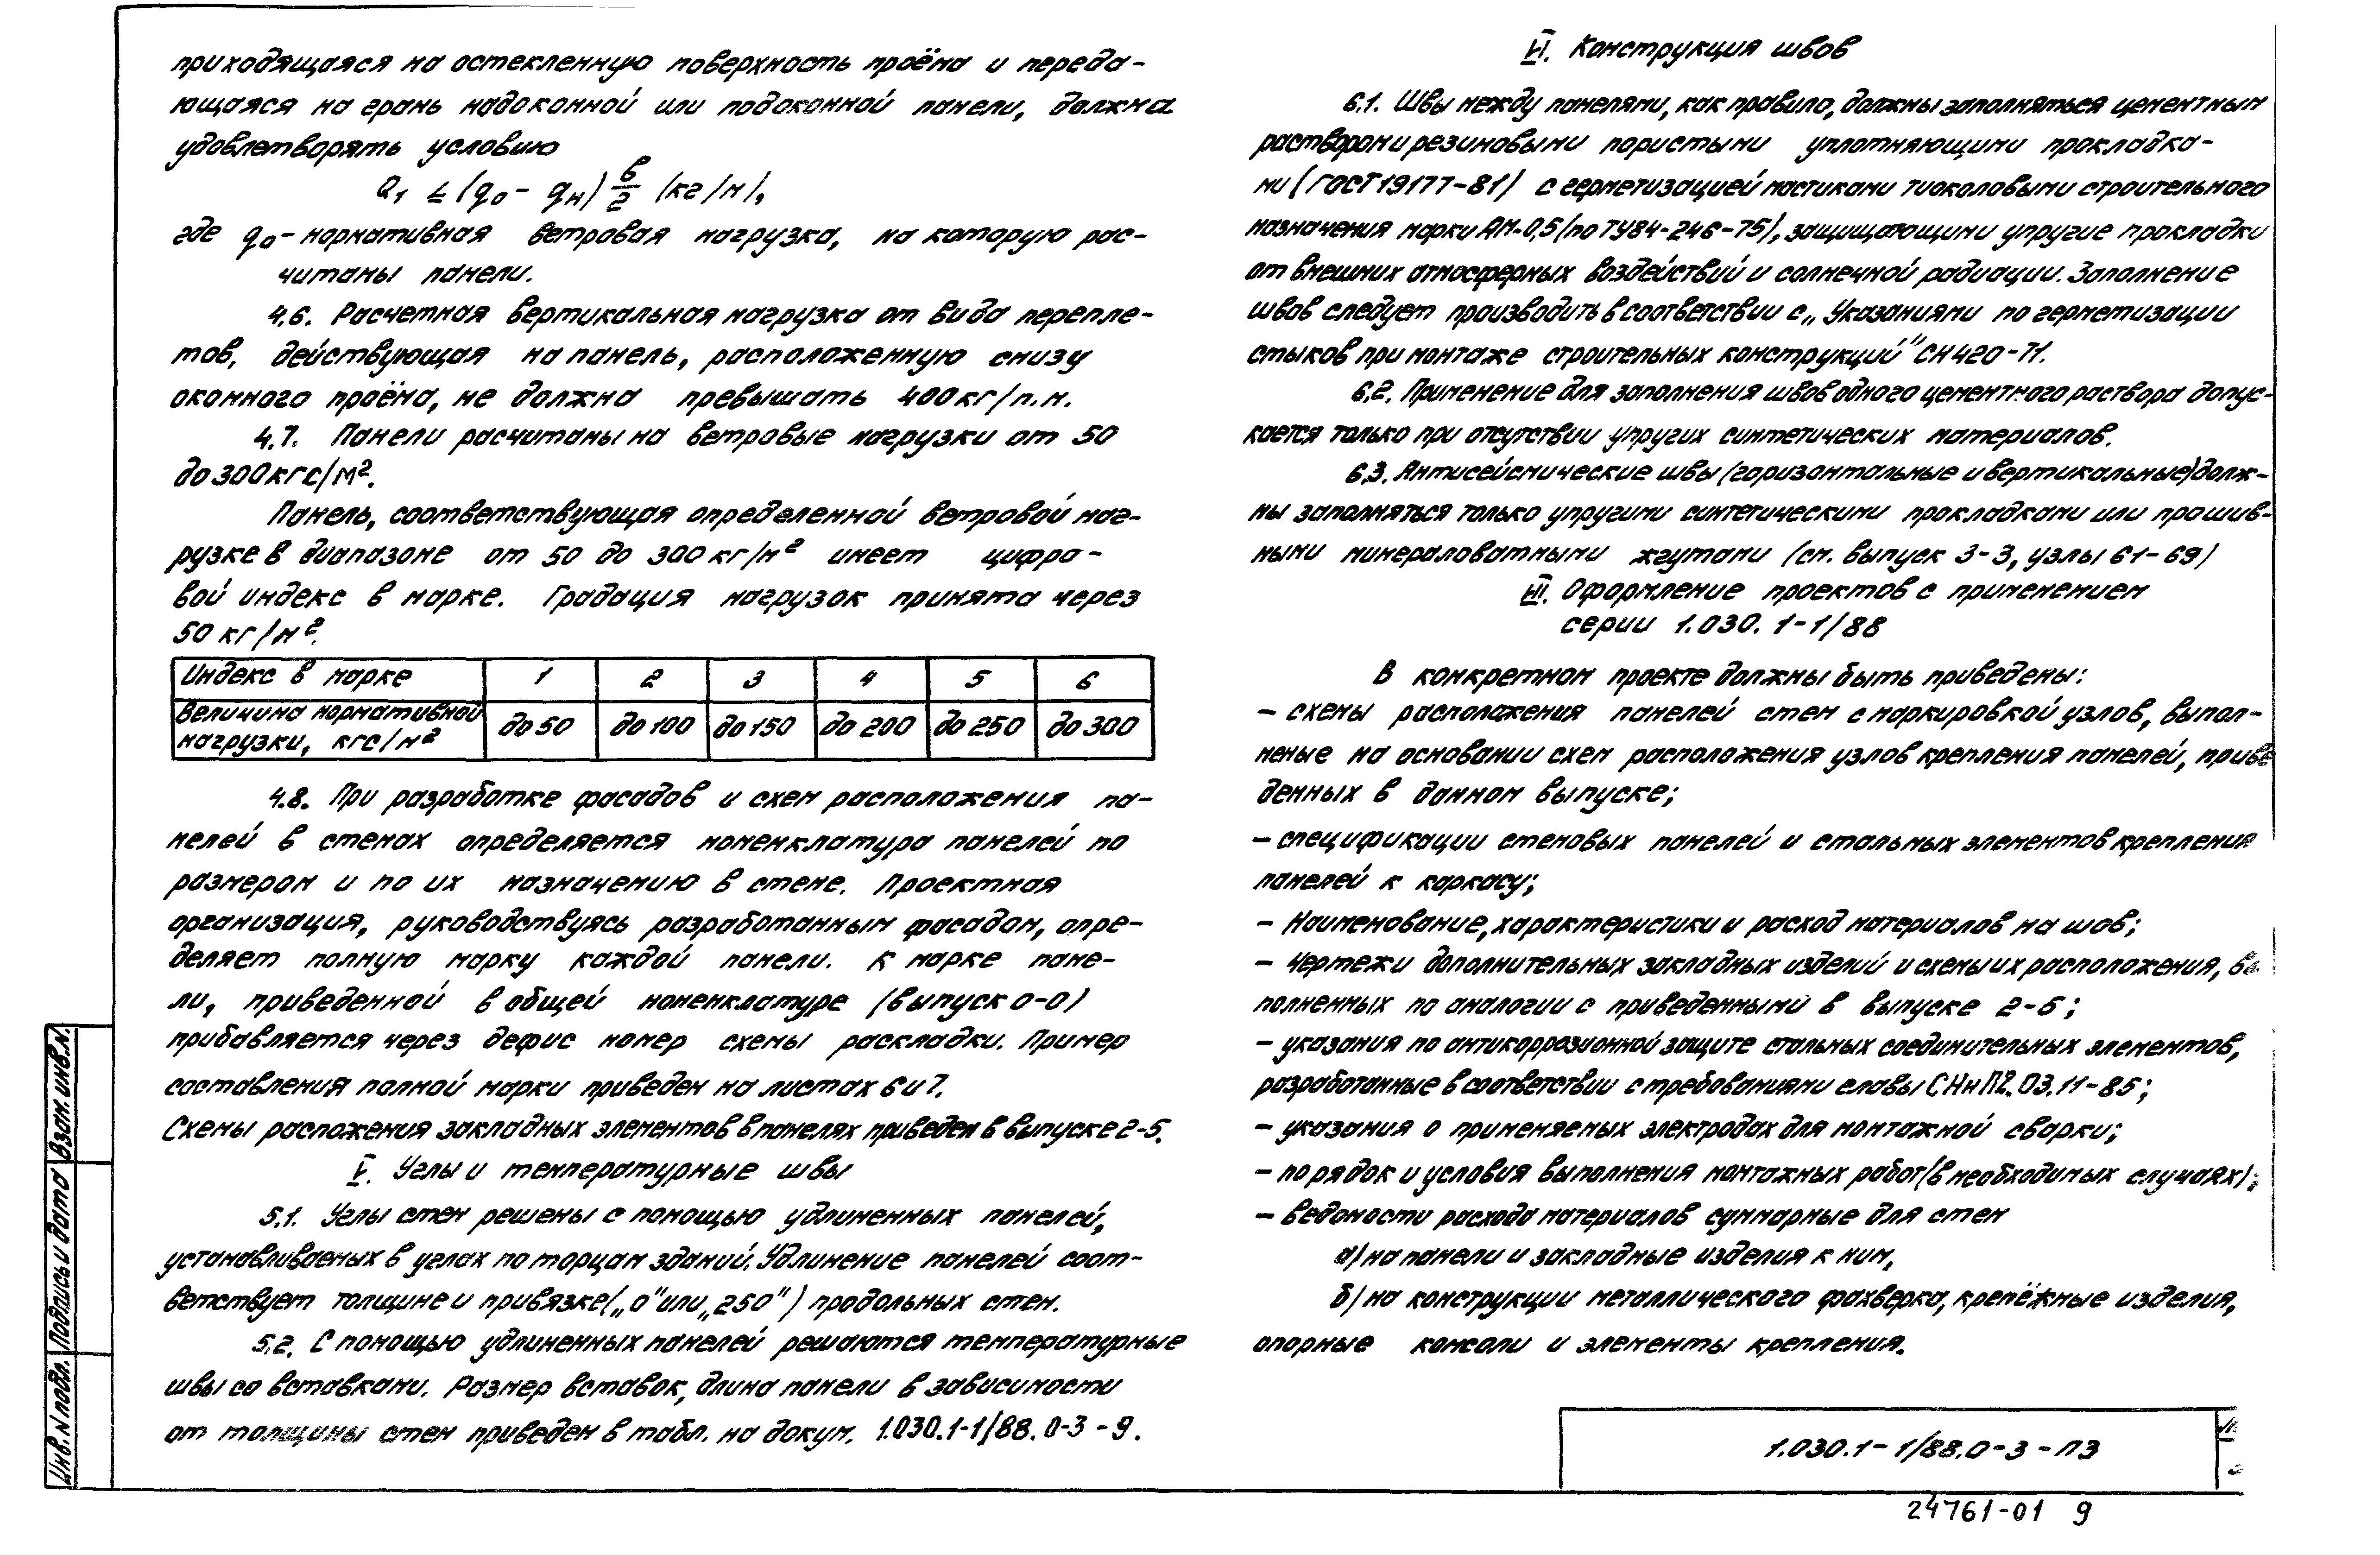 приходящаяся на остекленную поверхность проёма и переда-
ющаяся на грань надоконной или подоконной панели, должна
удовлетворять условию
Q₁ ≤ (q₀ - qн) б/2 (кг/м),
где q₀ - нормативная ветровая нагрузка, на которую рас-
читаны панели.
4.6. Расчетная вертикальная нагрузка от вида перепле-
тов, действующая на панель, расположенную снизу
оконного проёма, не должна превышать 400кг/п.м.
4.7. Панели расчитаны на ветровые нагрузки от 50
до 300кгс/м².
Панель, соответствующая определенной ветровой наг-
рузке в диапазоне от 50 до 300 кг/м² имеет цифро-
вой индекс в марке. Градация нагрузок принята через
50 кг/м².
Индекс в марке 1 2 3 4 5 6
Величина нормативной
нагрузки, кгс/м² до 50 до 100 до 150 до 200 до 250 до 300
4.8. При разработке фасадов и схем расположения па-
нелей в стенах определяется номенклатура панелей по
размером и по их назначению в стене. Проектная
организация, руководствуясь разработанным фасадом, опре-
деляет полную марку каждой панели. К марке пане-
ли, приведенной в общей номенклатуре (выпуск 0-0)
прибавляется через дефис номер схемы раскладки. Пример
составления полной марки приведен на листах 6 и 7.
Схемы расположения закладных элементов в панелях приведен в выпуске 2-5.
V. Углы и температурные швы
5.1. Углы стен решены с помощью удлиненных панелей,
устанавливаемых в углах по торцам зданий. Удлинение панелей соот-
ветствует толщине и привязке („0" или „250") продольных стен.
5.2. С помощью удлиненных панелей решаются температурные
швы со вставками. Размер вставок, длина панели в зависимости
от толщины стен приведен в табл. на докум. 1.030.1-1/88.0-3-9.
VI. Конструкция швов
6.1. Швы между панелями, как правило, должны заполняться цементным
раствором и резиновыми пористыми уплотняющими прокладка-
ми (ГОСТ 19177-81) с герметизацией мастиками тиоколовыми строительного
назначения марки АМ-0,5 (по ТУ84-246-75), защищающими упругие прокладки
от внешних атмосферных воздействий и солнечной радиации. Заполнение
швов следует производить в соответствии с „Указаниями по герметизации
стыков при монтаже строительных конструкций" СН 420-71.
6.2. Применение для заполнения швов одного цементного раствора допус-
кается только при отсутствии упругих синтетических материалов.
6.3. Антисейсмические швы (горизонтальные и вертикальные) долж-
ны заполняться только упругими синтетическими прокладками или прошив-
ными минераловатными жгутами (см. выпуск 3-3, узлы 61-69)
VII. Оформление проектов с применением
серии 1.030.1-1/88
В конкретном проекте должны быть приведены:
- схемы расположения панелей стен с маркировкой узлов, выпол-
неные на основании схем расположения узлов крепления панелей, приве
денных в данном выпуске;
- спецификации стеновых панелей и стальных элементов крепления
панелей к каркасу;
- Наименование, характеристики и расход материалов на шов;
- Чертежи дополнительных закладных изделий и схемы их расположения, вы
полненных по аналогии с приведенными в выпуске 2-5;
- указания по антикоррозионной защите стальных соединительных элементов,
разработанные в соответствии с требованиями главы СНиП2.03.11-85;
- указания о применяемых электродах для монтажной сварки;
- порядок и условия выполнения монтажных работ (в необходимых случаях);
- ведомости расхода материалов суммарные для стен
а) на панели и закладные изделия к ним,
б) на конструкции металлического фахверка, крепёжные изделия,
опорные консоли и элементы крепления.
Инв. N подл. Подпись и дата Взам. инв. N.
1.030.1-1/88.0-3-ПЗ
24761-01 9